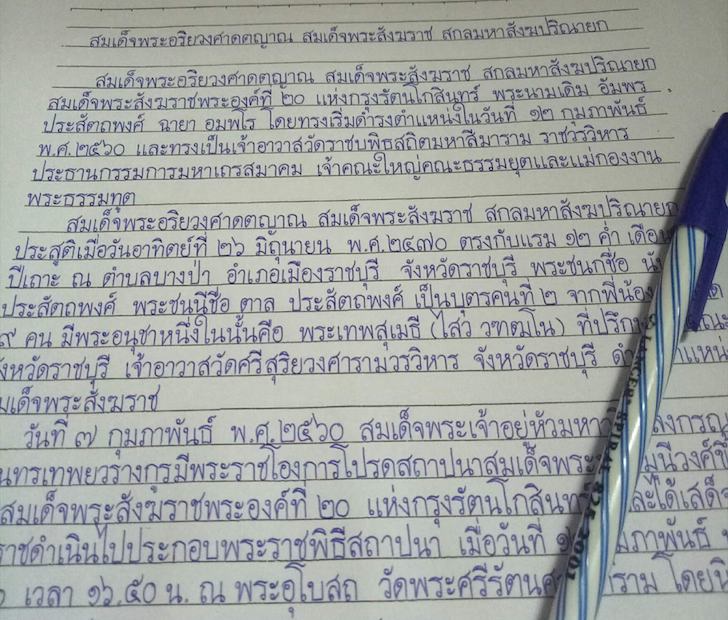 สมเด็จพระอริยวงศาคตญาณ สมเด็จพระสังฆราช สกลมหาสังฆปริณายก
สมเด็จพระอริยวงศาคตญาณ สมเด็จพระสังฆราช สกลมหาสังฆปริณายก
สมเด็จพระสังฆราชพระองค์ที่ ๒๐ แห่งกรุงรัตนโกสินทร์ พระนามเดิม อัมพร
ประสัตถพงศ์ ฉายา อมฺพโร โดยทรงเริ่มดำรงตำแหน่งในวันที่ ๑๒ กุมภาพันธ์
พ.ศ.๒๕๖๐ และทรงเป็นเจ้าอาวาสวัดราชบพิธสถิตมหาสีมาราม ราชวรวิหาร
ประธานกรรมการมหาเถรสมาคม เจ้าคณะใหญ่คณะธรรมยุตและแม่กองงาน
พระธรรมทูต
สมเด็จพระอริยวงศาคตญาณ สมเด็จพระสังฆราช สกลมหาสังฆปริณายก
ประสูติเมื่อวันอาทิตย์ที่ ๒๖ มิถุนายน พ.ศ.๒๔๗๐ ตรงกับแรม ๑๒ ค่ำ เดือน
ปีเถาะ ณ ตำบลบางป่า อำเภอเมืองราชบุรี จังหวัดราชบุรี พระชนกชื่อ นับ
ประสัตถพงศ์ พระชนนีชื่อ ตาล ประสัตถพงศ์ เป็นบุตรคนที่ ๒ จากพี่น้อง
๙ คน มีพระอนุชาหนึ่งในนั้นคือ พระเทพสุเมธี (ไสว วฑฺฒโน) ที่ปรึกษา
จังหวัดราชบุรี เจ้าอาวาสวัดศรีสุริยวงศารามวรวิหาร จังหวัดราชบุรี
สมเด็จพระสังฆราช
วันที่ ๗ กุมภาพันธ์ พ.ศ.๒๕๖๐ สมเด็จพระเจ้าอยู่หัวมหา ลงกรณ
นทรเทพยวรางกูรมีพระราชโองการโปรดสถาปนาสมเด็จพระ มุนีวงศ์
สมเด็จพระสังฆราชพระองค์ที่ ๒๐ แห่งกรุงรัตนโกสินทร์ และได้เสด็จ
ราชดำเนินไปประกอบพระราชพิธีสถาปนา เมื่อวันที่ กุมภาพันธ์
เวลา ๑๖.๕๐ น. ณ พระอุโบสถ วัดพระศรีรัตนศาสดาราม โดย